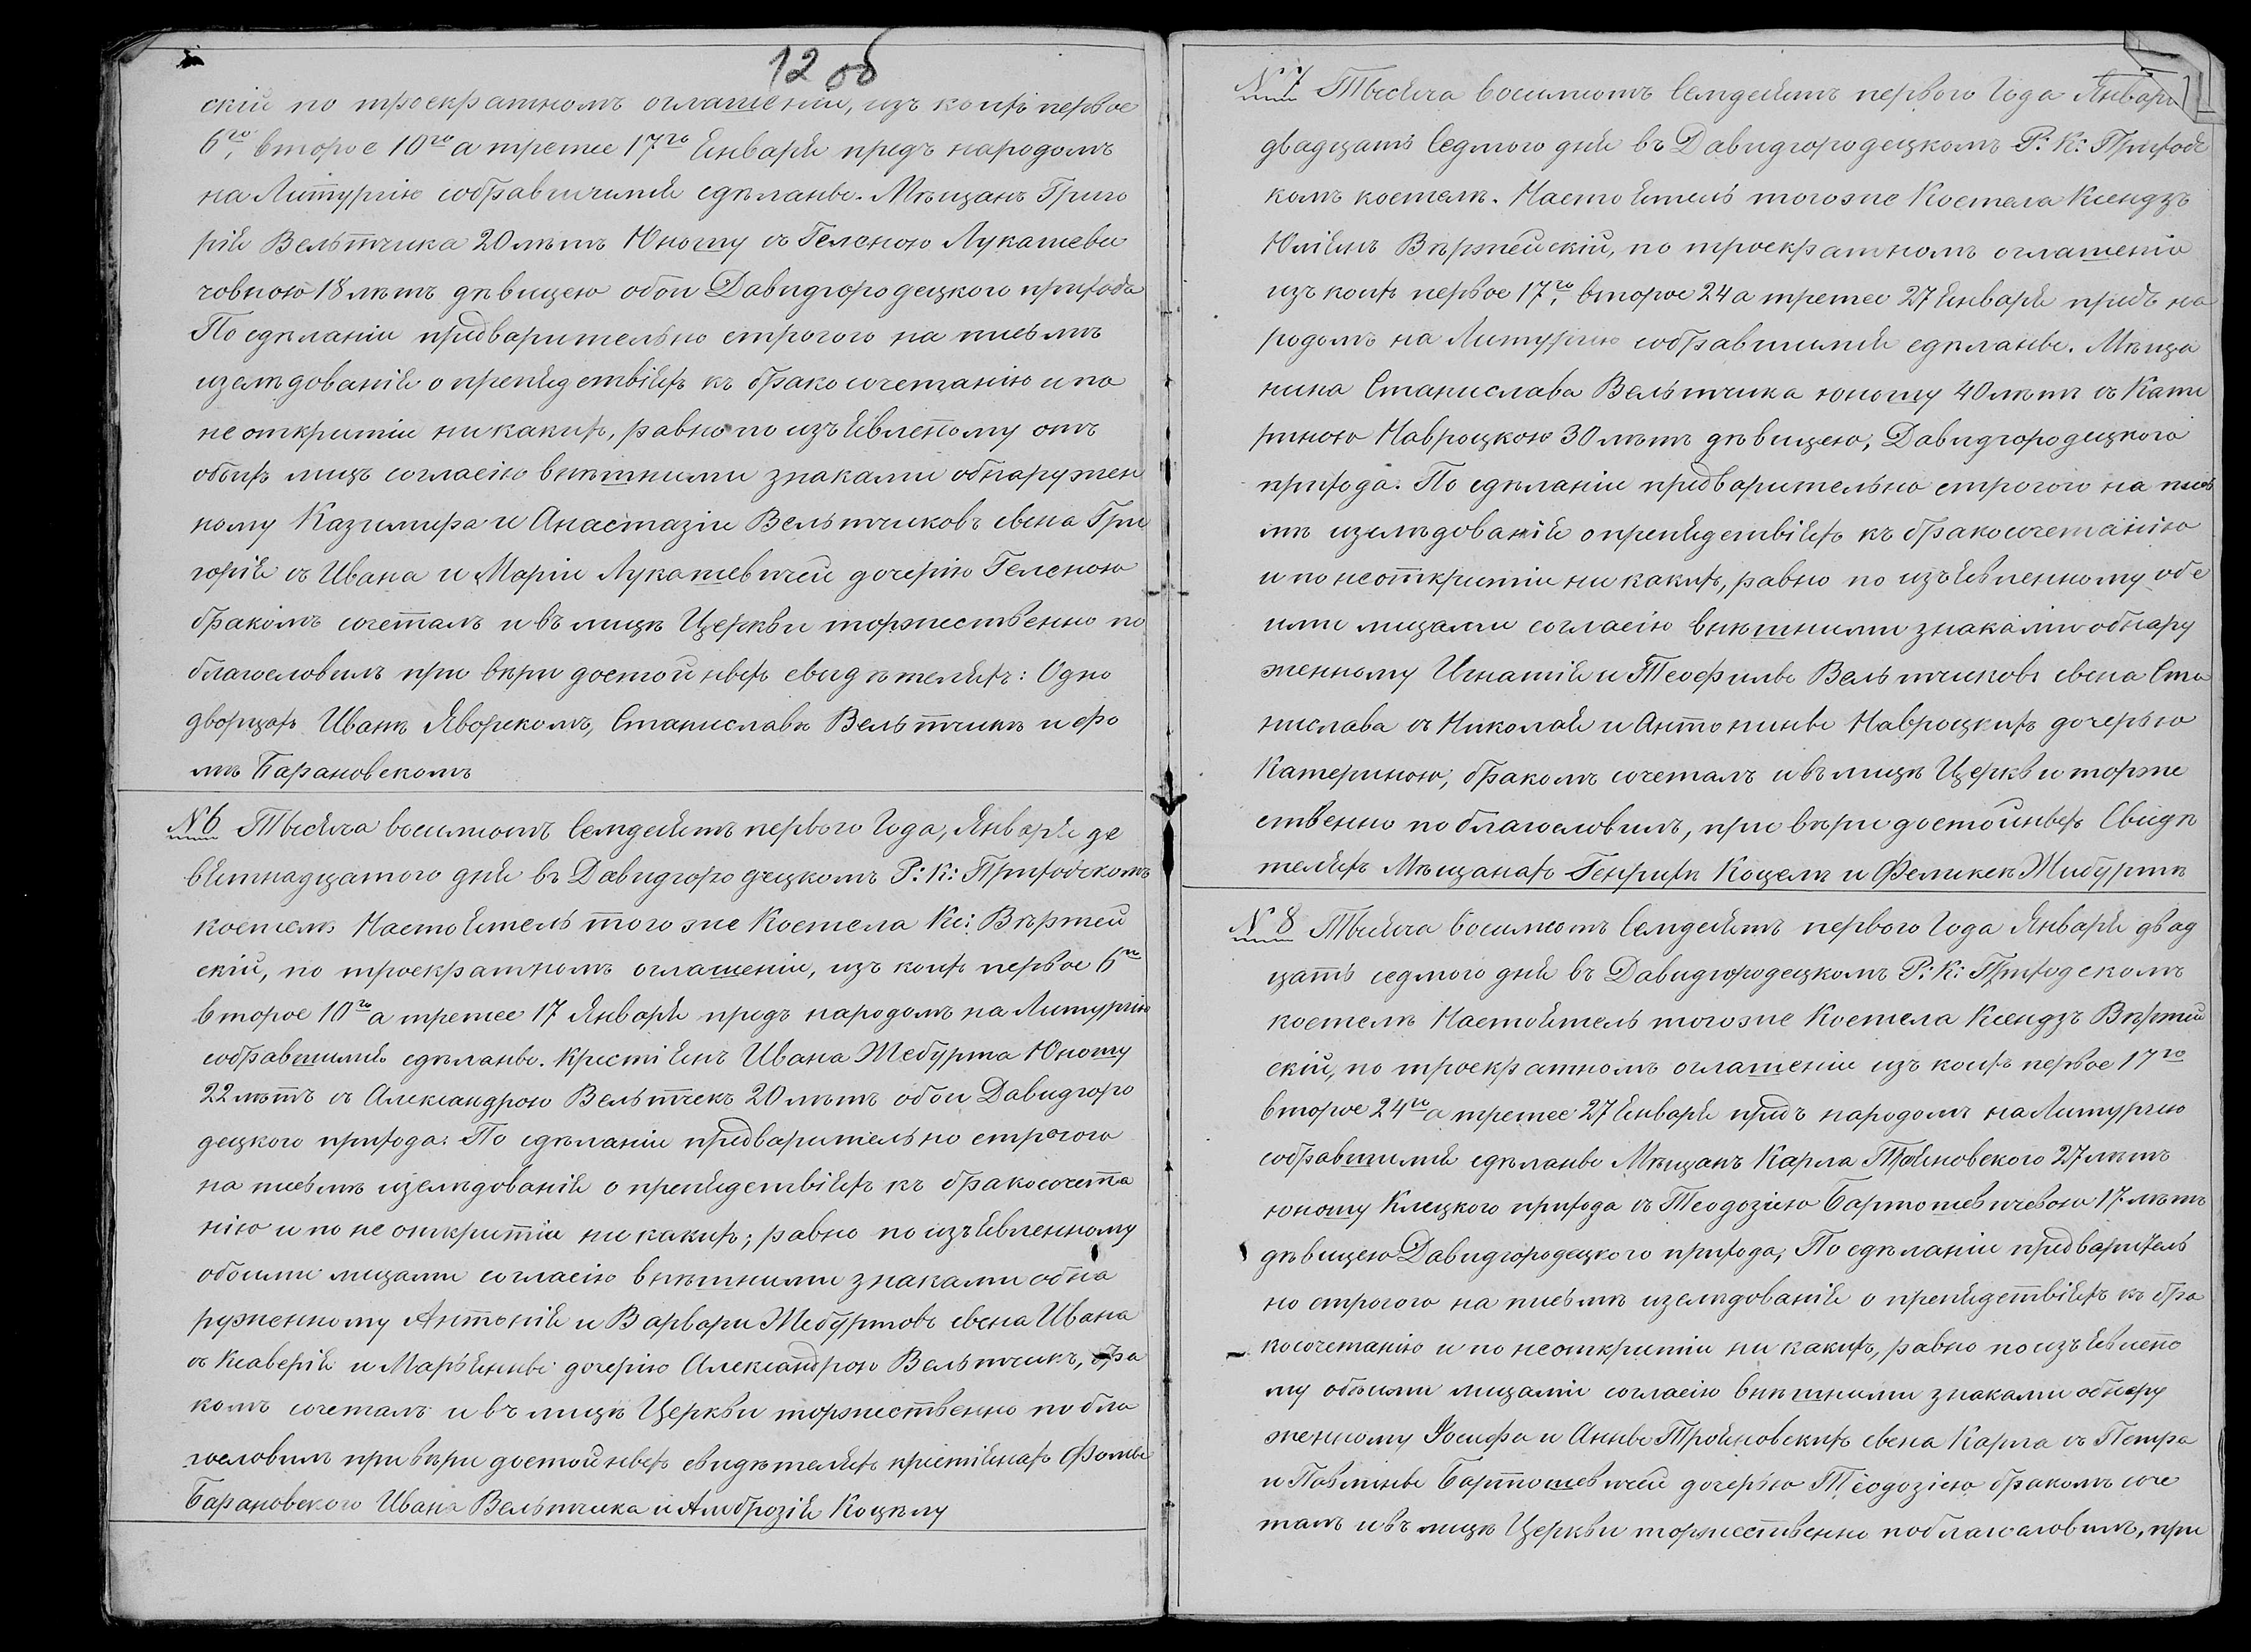 12 об
скій по троекратномъ оглашеніи, изъ коихъ первое
6го, второе 10го а третее 17го Января предъ народомъ
на Литургію собравшимся сдѣланые. Мѣщанъ Григо
рія Вельтчика 20 лѣтъ Юношу съ Геленою Лукашеви
човною 18 лѣтъ дѣвицею обои Давидгородецкого прихода
По сдѣланіи предварительно строгого на письмѣ
изслѣдованія о препядствіяхъ къ бракосочетанію и по
не открытіи ни какихъ, равно по изъявленному отъ
обоихъ лицъ согласію внѣшними знаками обнаружен
ному Казимира и Анастазіи Вельтчиковъ сына Гри
горія съ Ивана и Маріи Лукашевичей дочерію Геленою
бракомъ сочеталъ и въ лицѣ Церкви торжественно по
благословилъ при вѣри достойныхъ свидѣтеляхъ: Одно
дворцахъ Иванѣ Яворскомъ, Станиславѣ Вельтчикѣ и Фо
мѣ Барановскомъ
№ 6 Тысяча восимьсотъ семдесятъ первого Года, Января де
вятнадцатого дня въ Давидгородецкомъ Р: К: Приходскомъ
костелѣ Настоятель того же Костела Кс: Вѣржей
скій, по троекратномъ оглашеніи, изъ коихъ первое 6го
второе 10го а третее 17 Января предъ народомъ на Литургію
собравшимся сдѣланые. Крестіянъ Ивана Жебурта Юношу
22 лѣтъ съ Александрою Вельтчекъ 20 лѣтъ обои Давидгоро
децкого прихода: По сдѣланіи предварительно строгого
на письмѣ изслѣдованія о препядствіяхъ къ бракосочета
нію и по не открытіи ни какихъ; равно по изъявленному
обоими лицами согласію внѣшними знаками обна
руженному Антонія и Варвари Жебуртовъ сына Ивана
съ Ксаверія и Марьянны дочерію Александрою Вельтчикъ, бра
комъ сочеталъ и въ лицѣ Церкви торжественно побла
гословилъ при вѣри достойныхъ свидѣтеляхъ крестіянахъ Фомы
Барановского Ивана Вельтчика и Амброзія Коцелу
№ 7 Тысяча восимьсотъ семдесятъ первого Года Января
двадцать седмого дня въ Давидгородецкомъ Р: К: Приходс
комъ костелѣ. Настоятель того же Костела Ксендзъ
Юліянъ Вѣржейскій, по троекратномъ оглашенію
изъ коихъ первое 17го, второе 24 а третее 27 Января предъ на
родомъ на Литургію собравшимся сдѣланые. Мѣща
нина Станислава Вельтчика юношу 40 лѣтъ съ Кате
риною Навроцкою 30 лѣтъ дѣвицею, Давидгородецкого
прихода. По сдѣланіи предварительно строгого на пись
мѣ изслѣдованія о препядствіяхъ къ бракосочетанію
и по неоткрытіи ни какихъ, равно по изъявленному обо
ими лицами согласію внѣшними знаками обнару
женному Игнатія и Теофилы Вельтчиковъ сына Ста
нислава съ Николая и Антонины Навроцкихъ дочерью
Катериною, бракомъ сочеталъ и въ лицѣ Церкви торже
ственно поблагословилъ, при вѣри достойныхъ Свидѣ
теляхъ Мѣщанахъ Генрихѣ Коцелѣ и Феликсѣ Жибуртѣ
№ 8 Тысяча восимьсотъ семдесятъ первого Года Января двад
цать седмого дня въ Давидгородецкомъ Р: К: Приходскомъ
костелѣ Настоятель того же Костела Ксендзъ Вѣржей
скій, по троекратномъ оглашеніи изъ коихъ первое 17го
второе 24го а третее 27 Января предъ народомъ на Литургію
собравшимся сдѣланые Мѣщанъ Карла Трояновского 27 лѣтъ
юношу Клецкого прихода съ Теодозіею Бартошевичевою 17 лѣтъ
дѣвицею Давидгородецкого прихода; По сдѣланіи предваритель
но строгого на письмѣ изслѣдованія о препядствіяхъ къ бра
косочетанію и по неоткрытіи ни какихъ, равно по изъявлено
му обоими лицами согласію внѣшними знаками обнару
женному Іосифа и Анны Трояновскихъ сына Карла съ Петра
и Павлины Бартошевичей дочерью Теодозіею бракомъ соче
талъ и въ лицѣ Церкви торжественно поблагословилъ, при